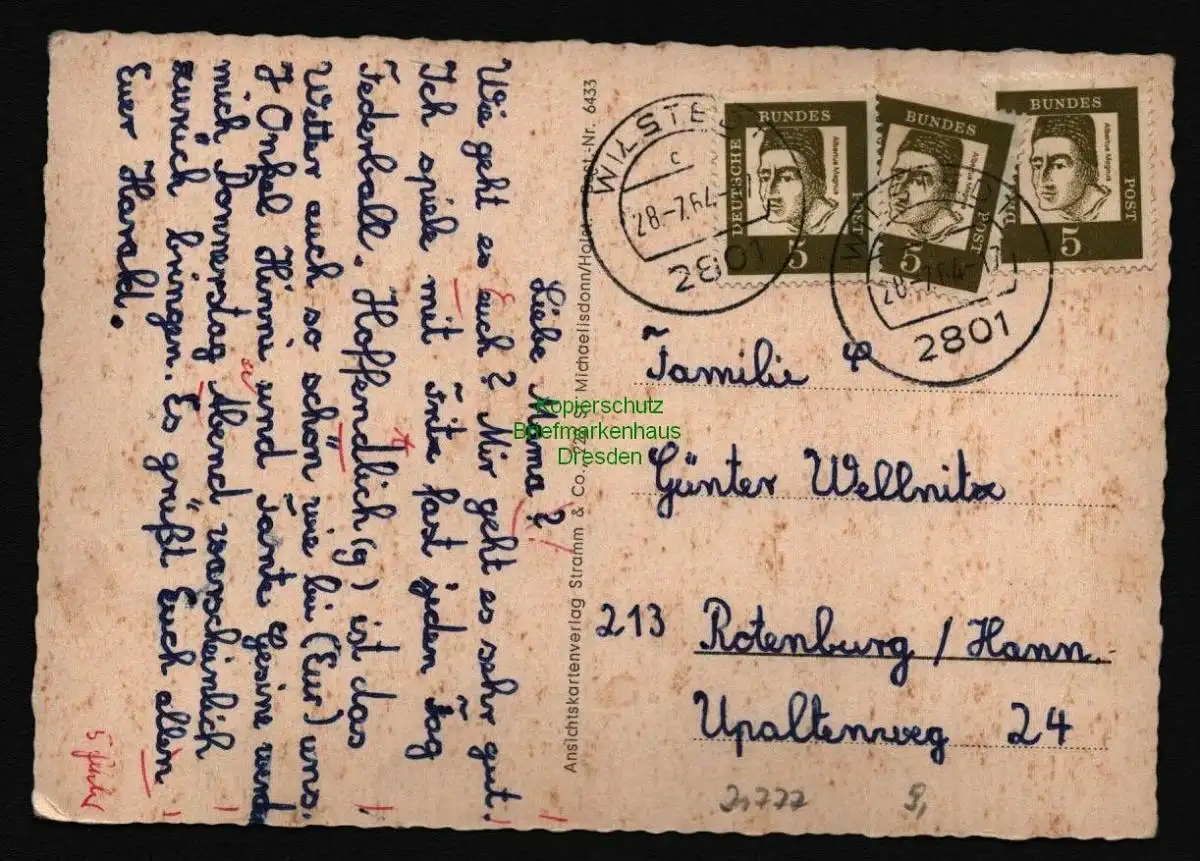 Liebe Mama?
Wie geht es euch? Mir geht es sehr gut.
Ich spiele mit Fritz fast jeden Tag
Federball. Hoffendlich (g) ist das
Wetter auch so schön wie bei (Eur) uns.
Onkel Hinni und Tante Gesine werden
mich Donnerstag Abend warscheinlich
zurück bringen. Es grüßt Euch allen
Euer Harald.
5 Fehler
Ansichtskartenverlag Stramm & Co., 2221 St. Michaelisdonn/Holst. Best.-Nr. 6433
WILSTEDT
c
28.-7.64
2801
28.-7.64
2801
DEUTSCHE BUNDESPOST
Albertus Magnus
5
BUNDES POST
5
BUNDES POST
Albertus Magnus
5
Familie
Günter Wellnitz
213 Rotenburg / Hann.
Upaltenweg 24
Kopierschutz
Briefmarkenhaus
Dresden